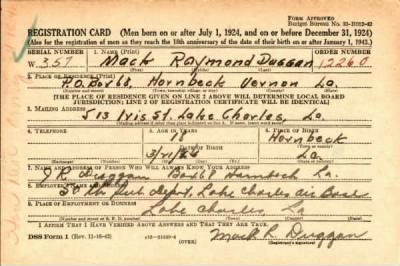 FORM APPROVED
Budget Bureau No.
REGISTRATION CARD (Men born on or after July 1, 1924, and on or before December 31, 1924)
(Also for the registration of men as they reach the 18th anniversary of the date of their birth on or after January 1, 1943.)
SERIAL NUMBER 1. NAME (Print) ORDER NUMBER
W 357 Mack Raymond Duggan 12260
(First) (Middle) (Last)
2. PLACE OF RESIDENCE (Print)
P.O. Box 68, Hornbeck Vernon La.
[THE PLACE OF RESIDENCE GIVEN ON LINE 2 ABOVE WILL DETERMINE LOCAL BOARD
JURISDICTION; LINE 2 OF REGISTRATION CERTIFICATE WILL BE IDENTICAL]
3. MAILING ADDRESS
513 Iris St. Lake Charles, La.
4. TELEPHONE 5. AGE IN YEARS 6. PLACE OF BIRTH
18 Hornbeck
DATE OF BIRTH
La.
7. NAME AND ADDRESS OF PERSON WHO WILL ALWAYS KNOW YOUR ADDRESS
J R Duggan Box 68 La.
8. EMPLOYER'S NAME AND ADDRESS
Sub Depot, Lake Charles Air Base
9. PLACE OF EMPLOYMENT OR BUSINESS
Lake Charles, La
I AFFIRM THAT I HAVE VERIFIED ABOVE ANSWERS AND THAT THEY ARE TRUE.
DSS Form 1 (Rev. 11-16-42) (OVER) Mack R. Duggan
(Registrant's signature)